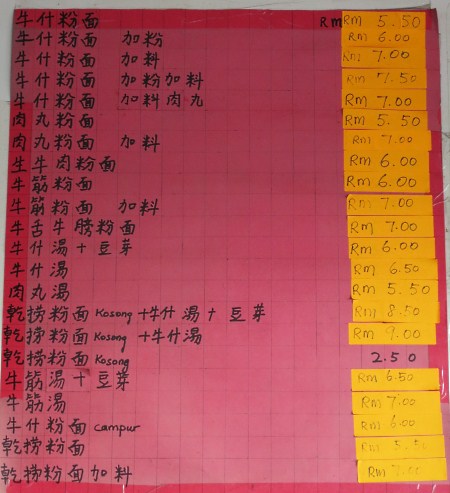 牛什粉面 Rm Rm 5.50
牛什粉面 加粉 Rm 6.00
牛什粉面 加料 Rm 7.00
牛什粉面 加粉加料 Rm 7.50
牛什粉面 加料肉丸 Rm 7.00
肉丸粉面 Rm 5.50
肉丸粉面 加料 Rm 7.00
生牛肉粉面 Rm 6.00
牛筋粉面 Rm 6.00
牛筋粉面 加料 Rm 7.00
牛舌牛膀粉面 Rm 7.00
牛什湯+豆芽 Rm 6.00
牛什湯 Rm 6.50
肉丸湯 Rm 5.50
乾捞粉面 Kosong +牛什湯+豆芽 Rm 8.50
乾捞粉面 Kosong +牛什湯 Rm 9.00
乾捞粉面 Kosong 2.50
牛筋湯+豆芽 Rm 6.50
牛筋湯 Rm 7.00
牛什粉面 campur Rm 6.00
乾捞粉面 Rm 5.50
乾捞粉面加料 Rm 7.00